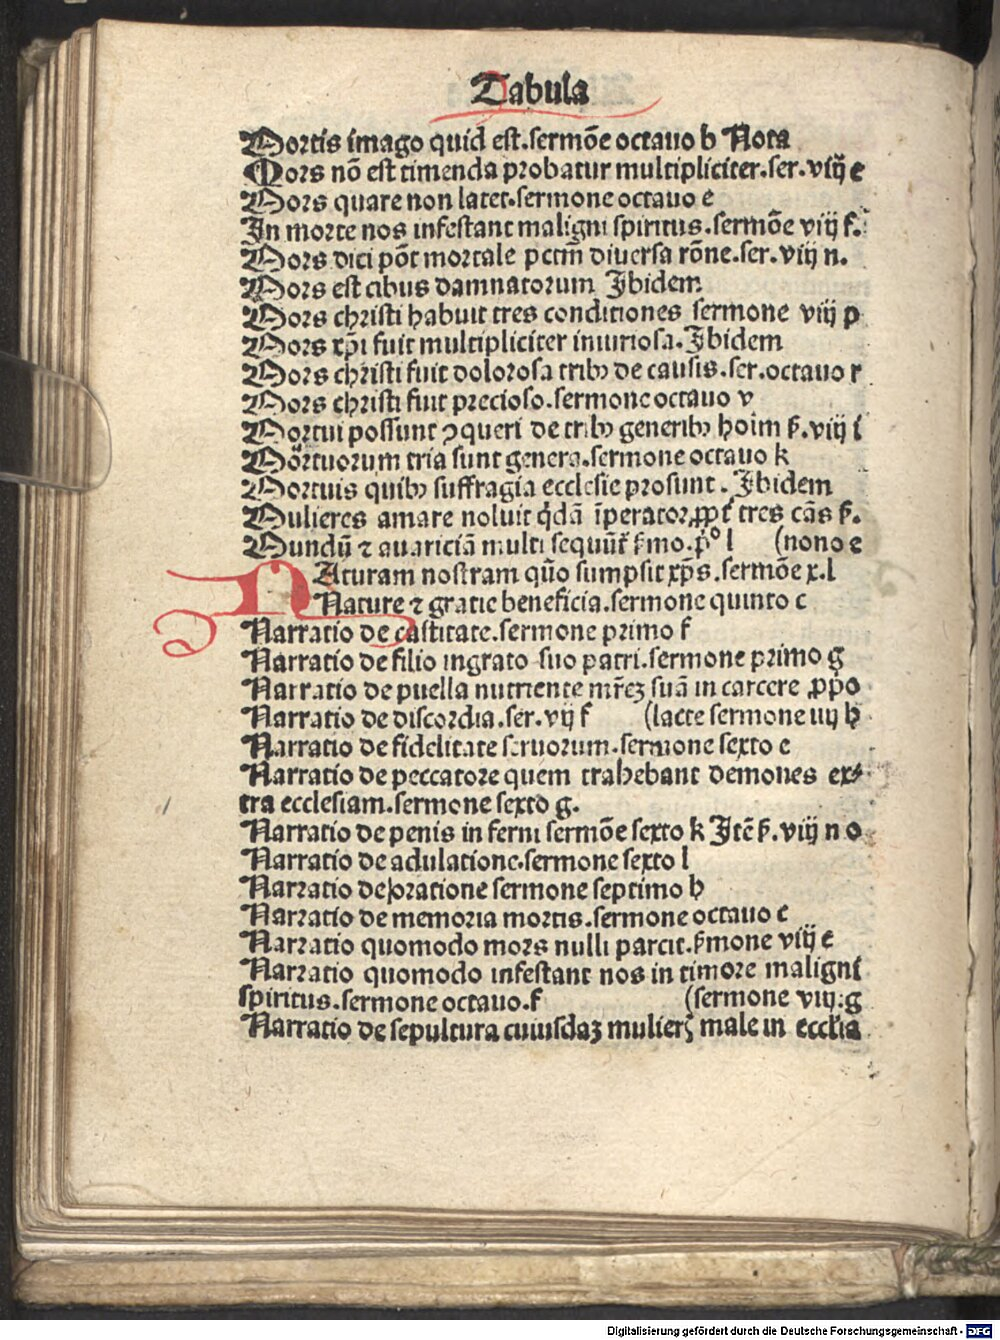 Tabula
Mortis imago quid est.sermōe octauo b Nota
Mors nō est timenda probatur multipliciter.ser.viij e
Mors quare non latet.sermone octauo e
In morte nos infestant maligni spiritus.sermōe viij f.
Mors dici pōt mortale pctm̄ diuersa rōne.ser.viij n.
Mors est cibus damnatorum Ibidem
Mors christi habuit tres conditiones sermone viij p
Mors xp̄i fuit multipliciter iniuriosa.Ibidem
Mors christi fuit dolorosa tribꝫ de causis.ser.octauo r
Mors christi fuit precioso.sermone octauo v
Mortui possunt ꝯqueri de tribꝫ generibꝫ hoim ẜ.viij i
Mortuorum tria sunt genera.sermone octauo k
Mortuis quibꝫ suffragia ecclesie prosunt. Ibidem
Mulieres amare noluit q̇dā īperator,ꝓpt̄ tres cās ẜ.
Mundū ⁊ auariciā multi sequūt̄ ẜmo.p̄º l (nono e
NAturam nostram quō sumpsit xp̄s.sermōe x.l
Nature ⁊ gratie beneficia.sermone quinto c
Narratio de castitate.sermone primo f
Narratio de filio ingrato suo patri.sermone primo g
Narratio de puella nutriente mr̄eꝫ suā in carcere ꝓpo
Narratio de discordia.ser.vij f (lacte sermone iiij h
Narratio de fidelitate seruorum.sermone sexto e
Narratio de peccatore quem trahebant demones ex⸗
tra ecclesiam.sermone sexto g.
Narratio de penis in ferni sermōe sexto k Itē ẜ.viij n o
Narratio de adulatione.sermone sexto l
Narratio de oratione sermone septimo h
Narratio de memoria mortis.sermone octauo c
Narratio quomodo mors nulli parcit.ẜmone viij e
Narratio quomodo infestant nos in timore maligni
spiritus.sermone octauo.f (sermone viij.g
Narratio de sepultura cuiusdaꝫ mulierꝭ male in eccl̄ia
Digitalisierung gefördert durch die Deutsche Forschungsgemeinschaft - DFG